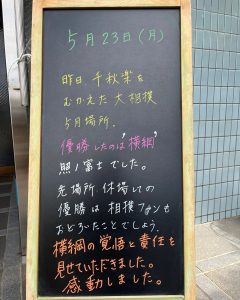 5月23日(月)
昨日 千秋楽を
むかえた 大相撲
5月場所.
優勝したのは"横綱"
照ノ富士でした。
先場所 休場しての
優勝は 相撲ファンも
おどろいたことでしょう.
横綱の覚悟と責任を
見せていただきました。
感動しました。